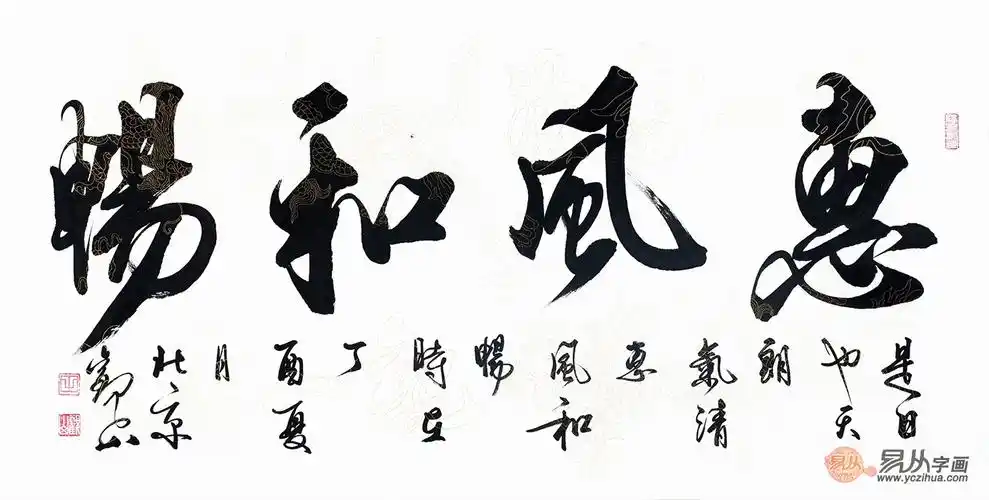 惠風和暢
是日
也天
朗
氣清
惠
風和
暢
時在
丁
酉夏
月
北京
易从
易从字画
www.yczihua.com